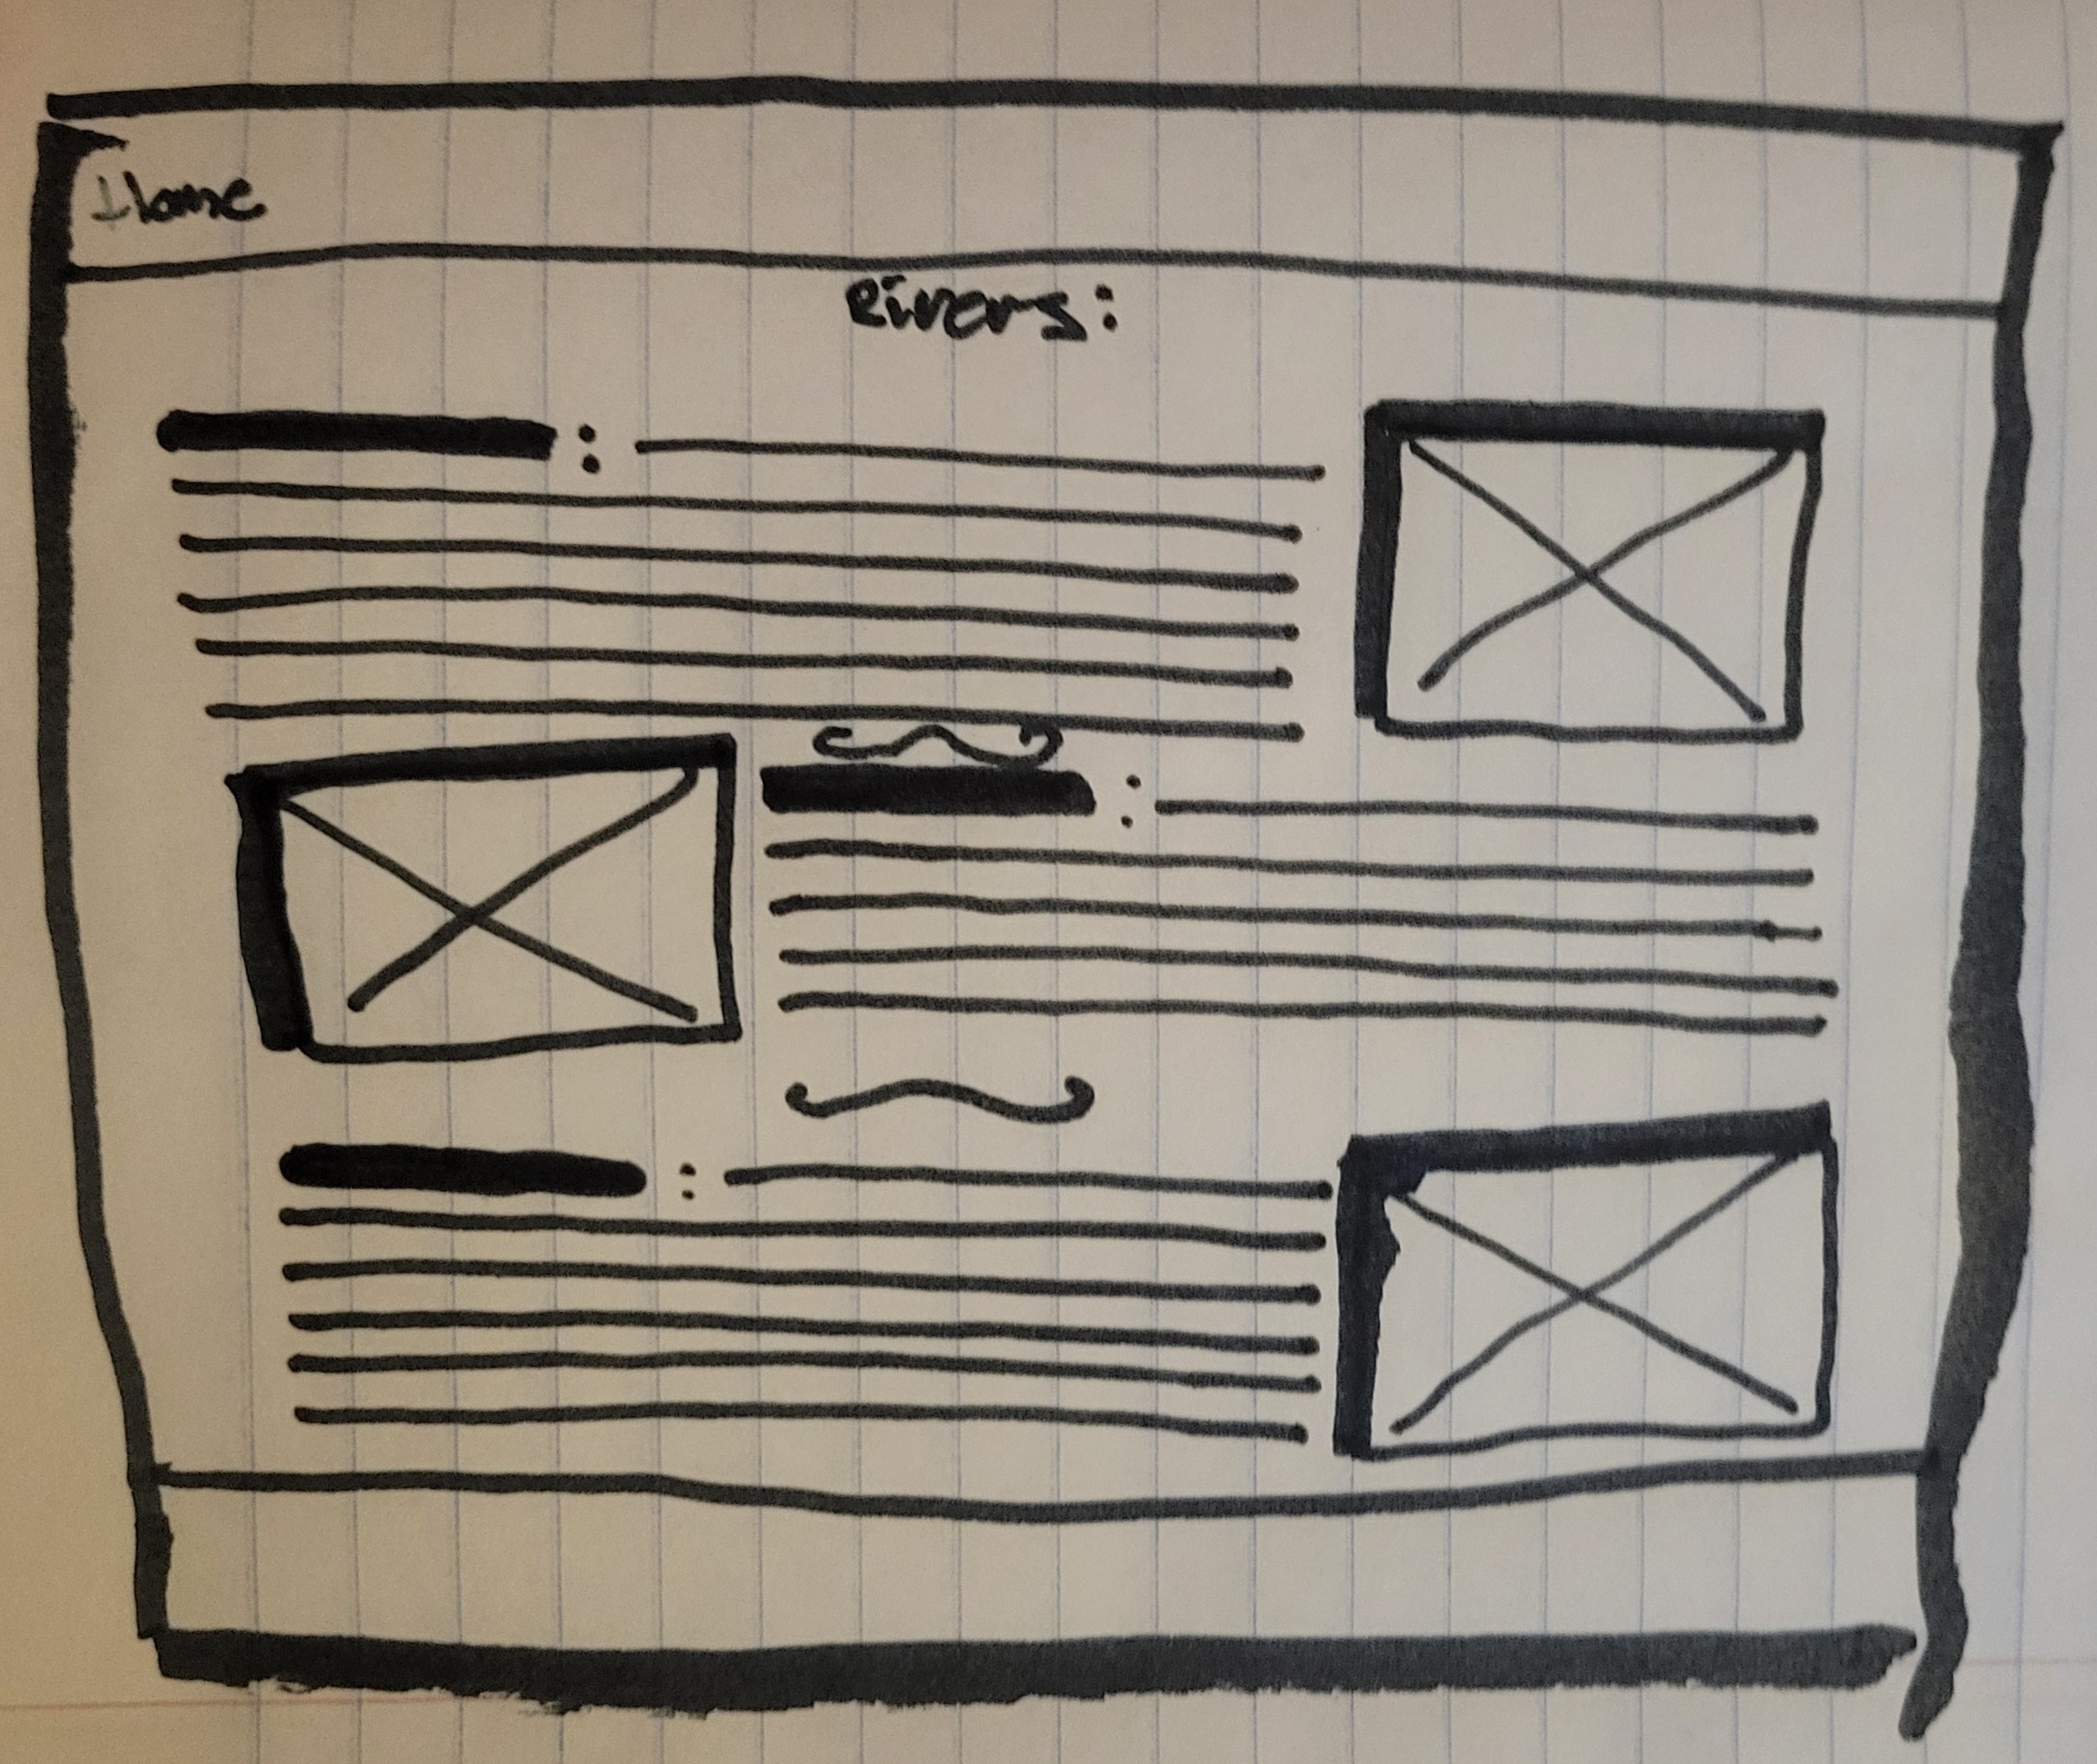 Home
Rivers:
:
:
: